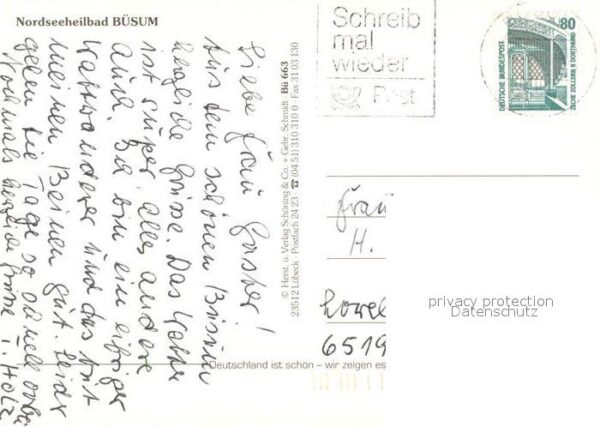 Nordseeheilbad BÜSUM
Liebe Frau Gasber!
Aus dem schönen Büsum
herzliche Grüße. Das Wetter
ist super, alles andere
auch. Ich bin ein eifriger
Wattwanderer und das tut
meinen Beinen gut. Leider
gehen die Tage so schnell vorbei
Nochmals herzliche Grüße I. Holz
© Herst. u. Verlag Schöning & Co. + Gebr. Schmidt · Bü 663
23512 Lübeck · Postfach 24 23 · ☎ (04 51) 310 310 0 · Fax 31 03 130
Schreib
mal
wieder
Post
80
DEUTSCHE BUNDESPOST
ZECHE ZOLLERN II DORTMUND
Frau
H.
6519
privacy protection
Datenschutz
Deutschland ist schön – wir zeigen es